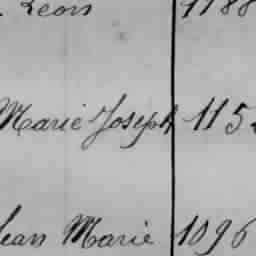 Leon 1188
Marie Joseph 115
Jean Marie 1096